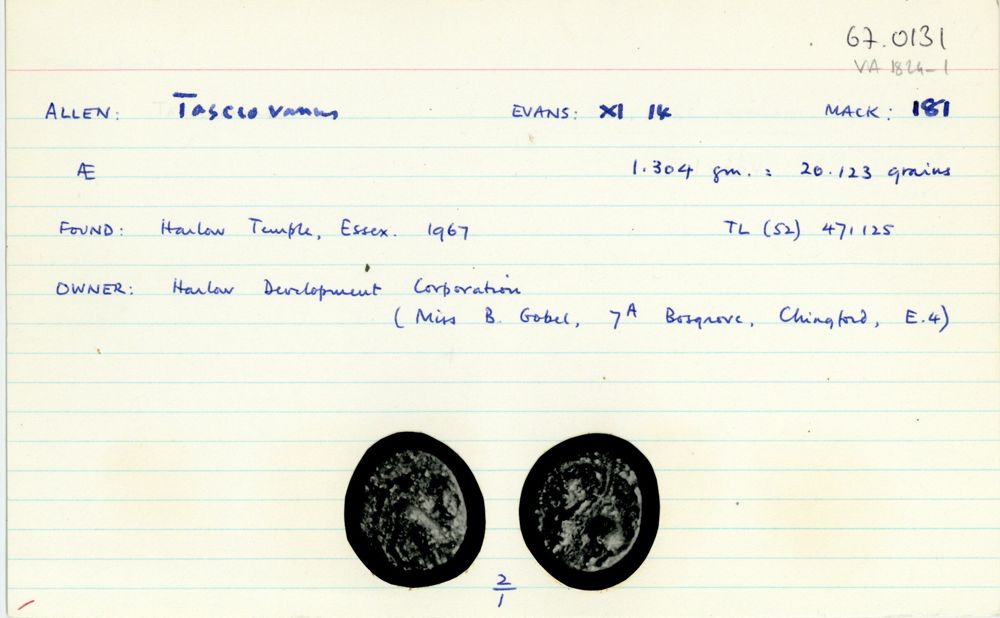 67.0131
VA 1824-1
ALLEN: Tasciovanus EVANS: XI 14 MACK: 181
Æ 1.304 gm. = 20.123 grains
FOUND: Harlow Temple, Essex. 1967 TL (52) 471125
OWNER: Harlow Development Corporation
(Miss B. Gobel, 7A Bosgrove, Chingford, E.4)
2
1